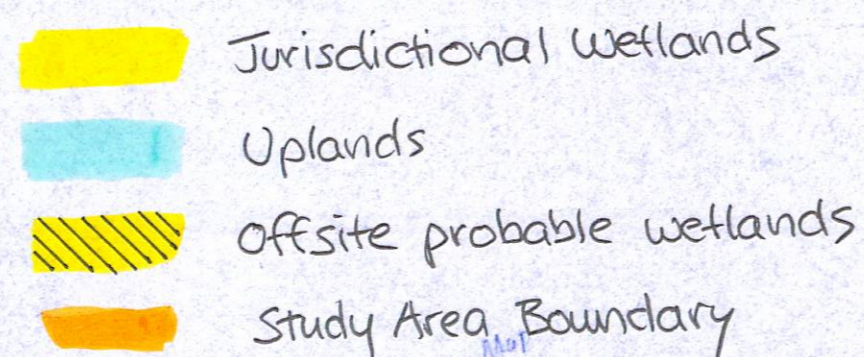 Jurisdictional Wetlands
Uplands
Offsite probable wetlands
Study Area Boundary